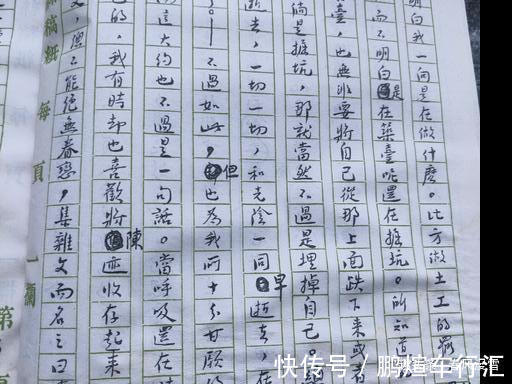 明白我一向是在做什麽。比方做土工的罷
而不明白是在築臺呢還在掘坑。所知道
臺,也無非要將自己從那上面跌下來或者
倘是掘坑,那就當然不過是埋掉自己
逝去,一切一切,和光陰一同早逝去,在
不過如此,但也為我所十分甘願的
這大約也不過是一句話。當呼吸還在
己的,我有時却也喜歡將陳迹收存起來
文,總不能絕無眷戀,集雜文而名之曰
稿紙 每頁 一欄
第
快传号 / 鹏煊车行汇